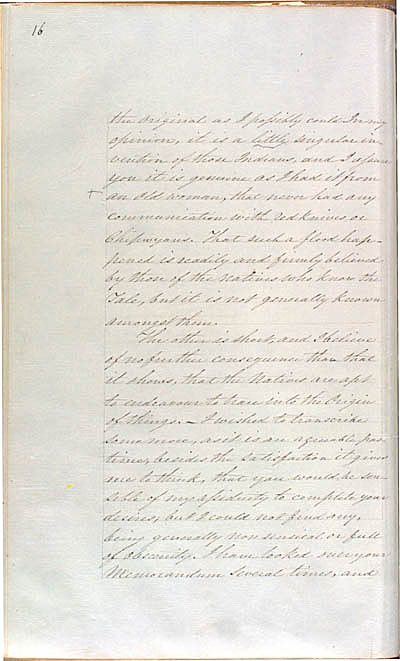 16
the Original as I possibly could. In my
opinion, it is a little singular in-
vention of those Indians, and I assure
you it is genuine as I had it from
an Old woman, that never had any
communication with Redknives or
Chipwyans. That such a flood hap-
pened is readily and firmly believed
by those of the Natives who know the
Tale, but it is not generally known
amongst them.
The other is short, and I believe
of no further consequence than that
it shows, that the Natives are apt
to endeavour to trace into the Origin
of things. - I wished to transcribe
some more, as it is an agreeable pas-
time, besides the satisfaction it gives
me to think, that you would be sen-
sible of my assiduity to complete your
desires, but I could not find any,
being generally nonsensical or full
of obscenity. I have looked over your
Memorandum several times, and